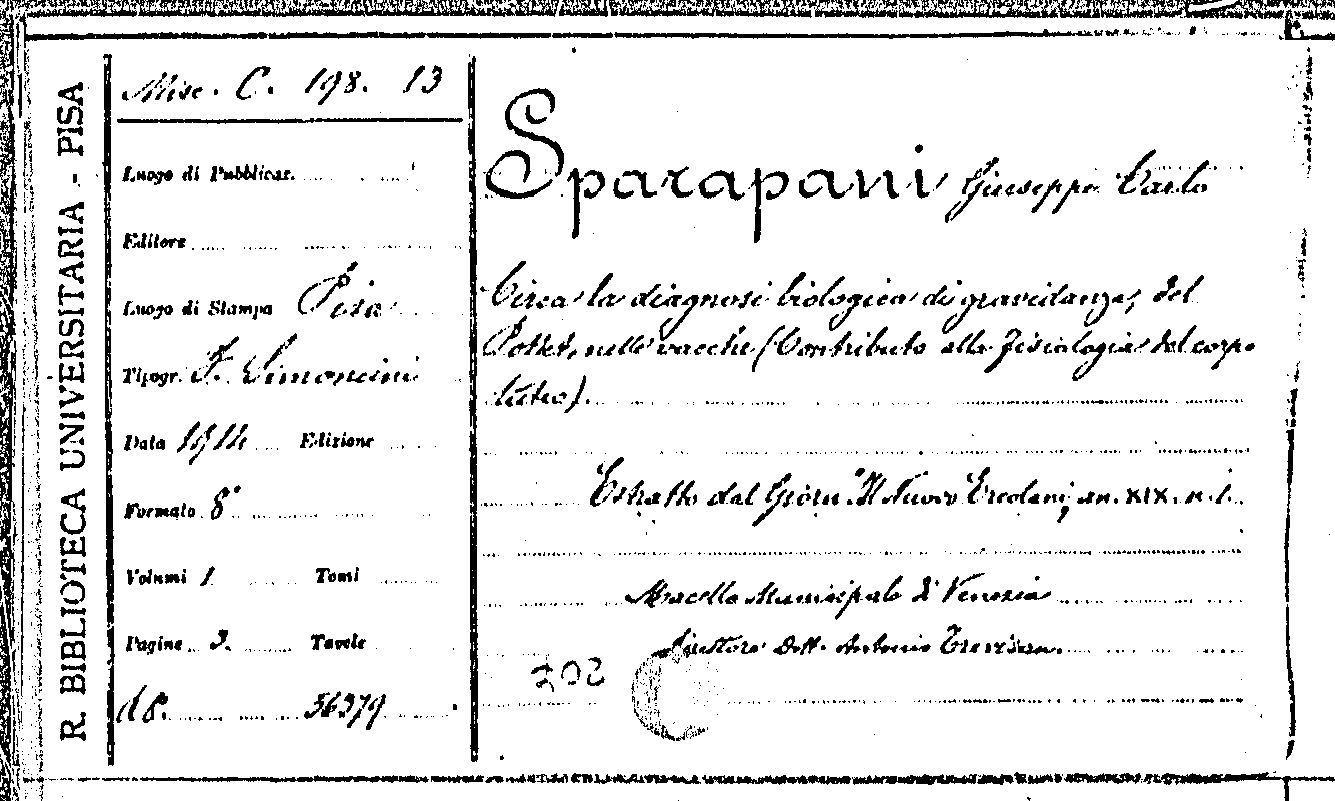 R. BIBLIOTECA UNIVERSITARIA - PISA
Misc. C. 198. 13
Luogo di Pubblicaz.
Editore
Luogo di Stampa Pisa
Tipogr. F. Simoncini
Data 1914 Edizione
Formato 8°
Volumi 1 Tomi
Pagine 3. Tavole
d P. 56379
Sparapani Giuseppe Carlo
Circa la diagnosi biologica di gravidanza, del
Pottet, nelle vacche (Contributo alla fisiologia del corpo
luteo).
Estratto dal Giorn. "Il Nuovo Ercolani, an. XIX. n. 1.
Macello Municipale di Venezia
Dott. Antonio Trevisan.
302